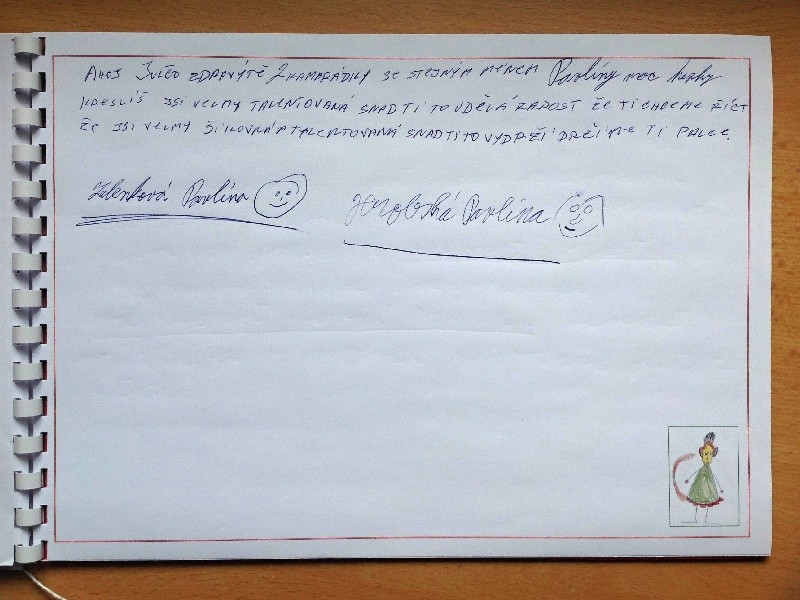 AHOJ JULČO ZDRAVÝTĚ 2 KAMARÁDKY SE STEJNÝM MÉNEM Pavlíny moc hezky
KRESLÍŠ JSI VELMY TALENTOVANÁ SNAD TI TO UDĚLÁ RADOST ŽE TI CHCEME ŘÍCT
ŽE JSI VELMY ŠIKOVNÁ A TALENTOVANÁ SNAD TI TO VYDRŽÍ DRŽÍME TI PALCE.
Zelenková Pavlína
Pavlína